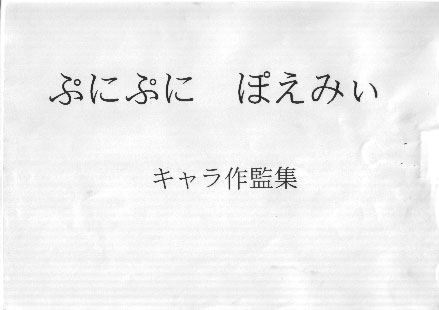 ぷにぷに　ぽえみぃ
キャラ作監集